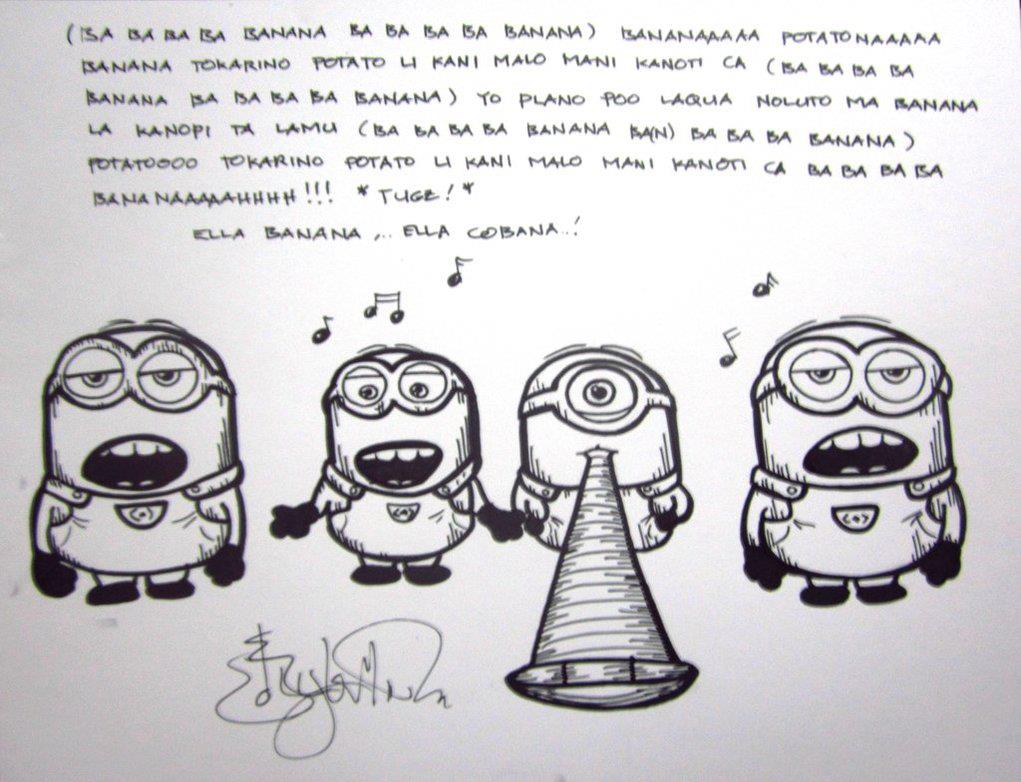 (BA BA BA BA BANANA BA BA BA BA BANANA) BANANAAAAA POTATONAAAAA
BANANA TOKARINO POTATO LI KANI MALO MANI KANOTI CA (BA BA BA BA
BANANA BA BA BA BA BANANA) YO PLANO POO LAQUA NOLUTO MA BANANA
LA KANOPI TA LAMU (BA BA BA BA BANANA BA(N) BA BA BA BANANA)
POTATOOOO TOKARINO POTATO LI KANI MALO MANI KANOTI CA BA BA BA BA
BANANAAAAAHHHH!!! *TUGE!*
ELLA BANANA ,.. ELLA COBANA..!